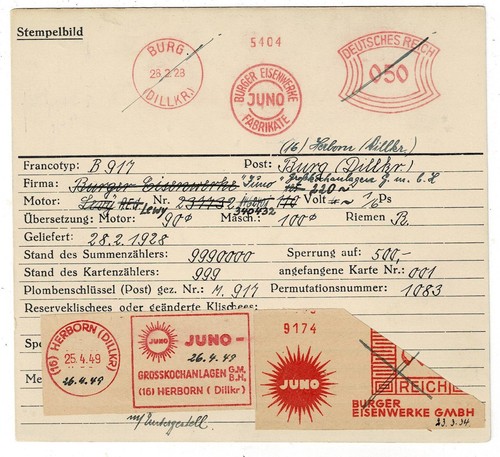 Stempelbild
BURG
28.2.28
(DILLKR.)
5404
BURGER EISENWERKE
JUNO
FABRIKATE
DEUTSCHES REICH
050
(16) Herborn (Dillkr.)
Francotyp: B 917 Post: Burg (Dillkr.)
Firma: Burger Eisenwerke "Juno" Großkochanlagen G.m.b.H.
Motor: Lewy Nr. 340432 220 ~ Volt 1/16 Ps
Übersetzung: Motor: 90z Masch.: 100z Riemen R.
Geliefert: 28.2.1928
Stand des Summenzählers: 9990000 Sperrung auf: 500,-
Stand des Kartenzählers: 999 angefangene Karte Nr.: 001
Plombenschlüssel (Post) gez. Nr.: M. 917 Permutationsnummer: 1083
Reserveklischees oder geänderte Klischees:
(16) HERBORN (DILLKR)
25.4.49
26.4.49
JUNO
JUNO-
26.4.49
GROSSKOCHANLAGEN G.M.B.H.
(16) HERBORN (Dillkr)
9174
JUNO
REICH
BURGER
EISENWERKE GMBH
23.3.34
Spe
Me
m/Untergestell.